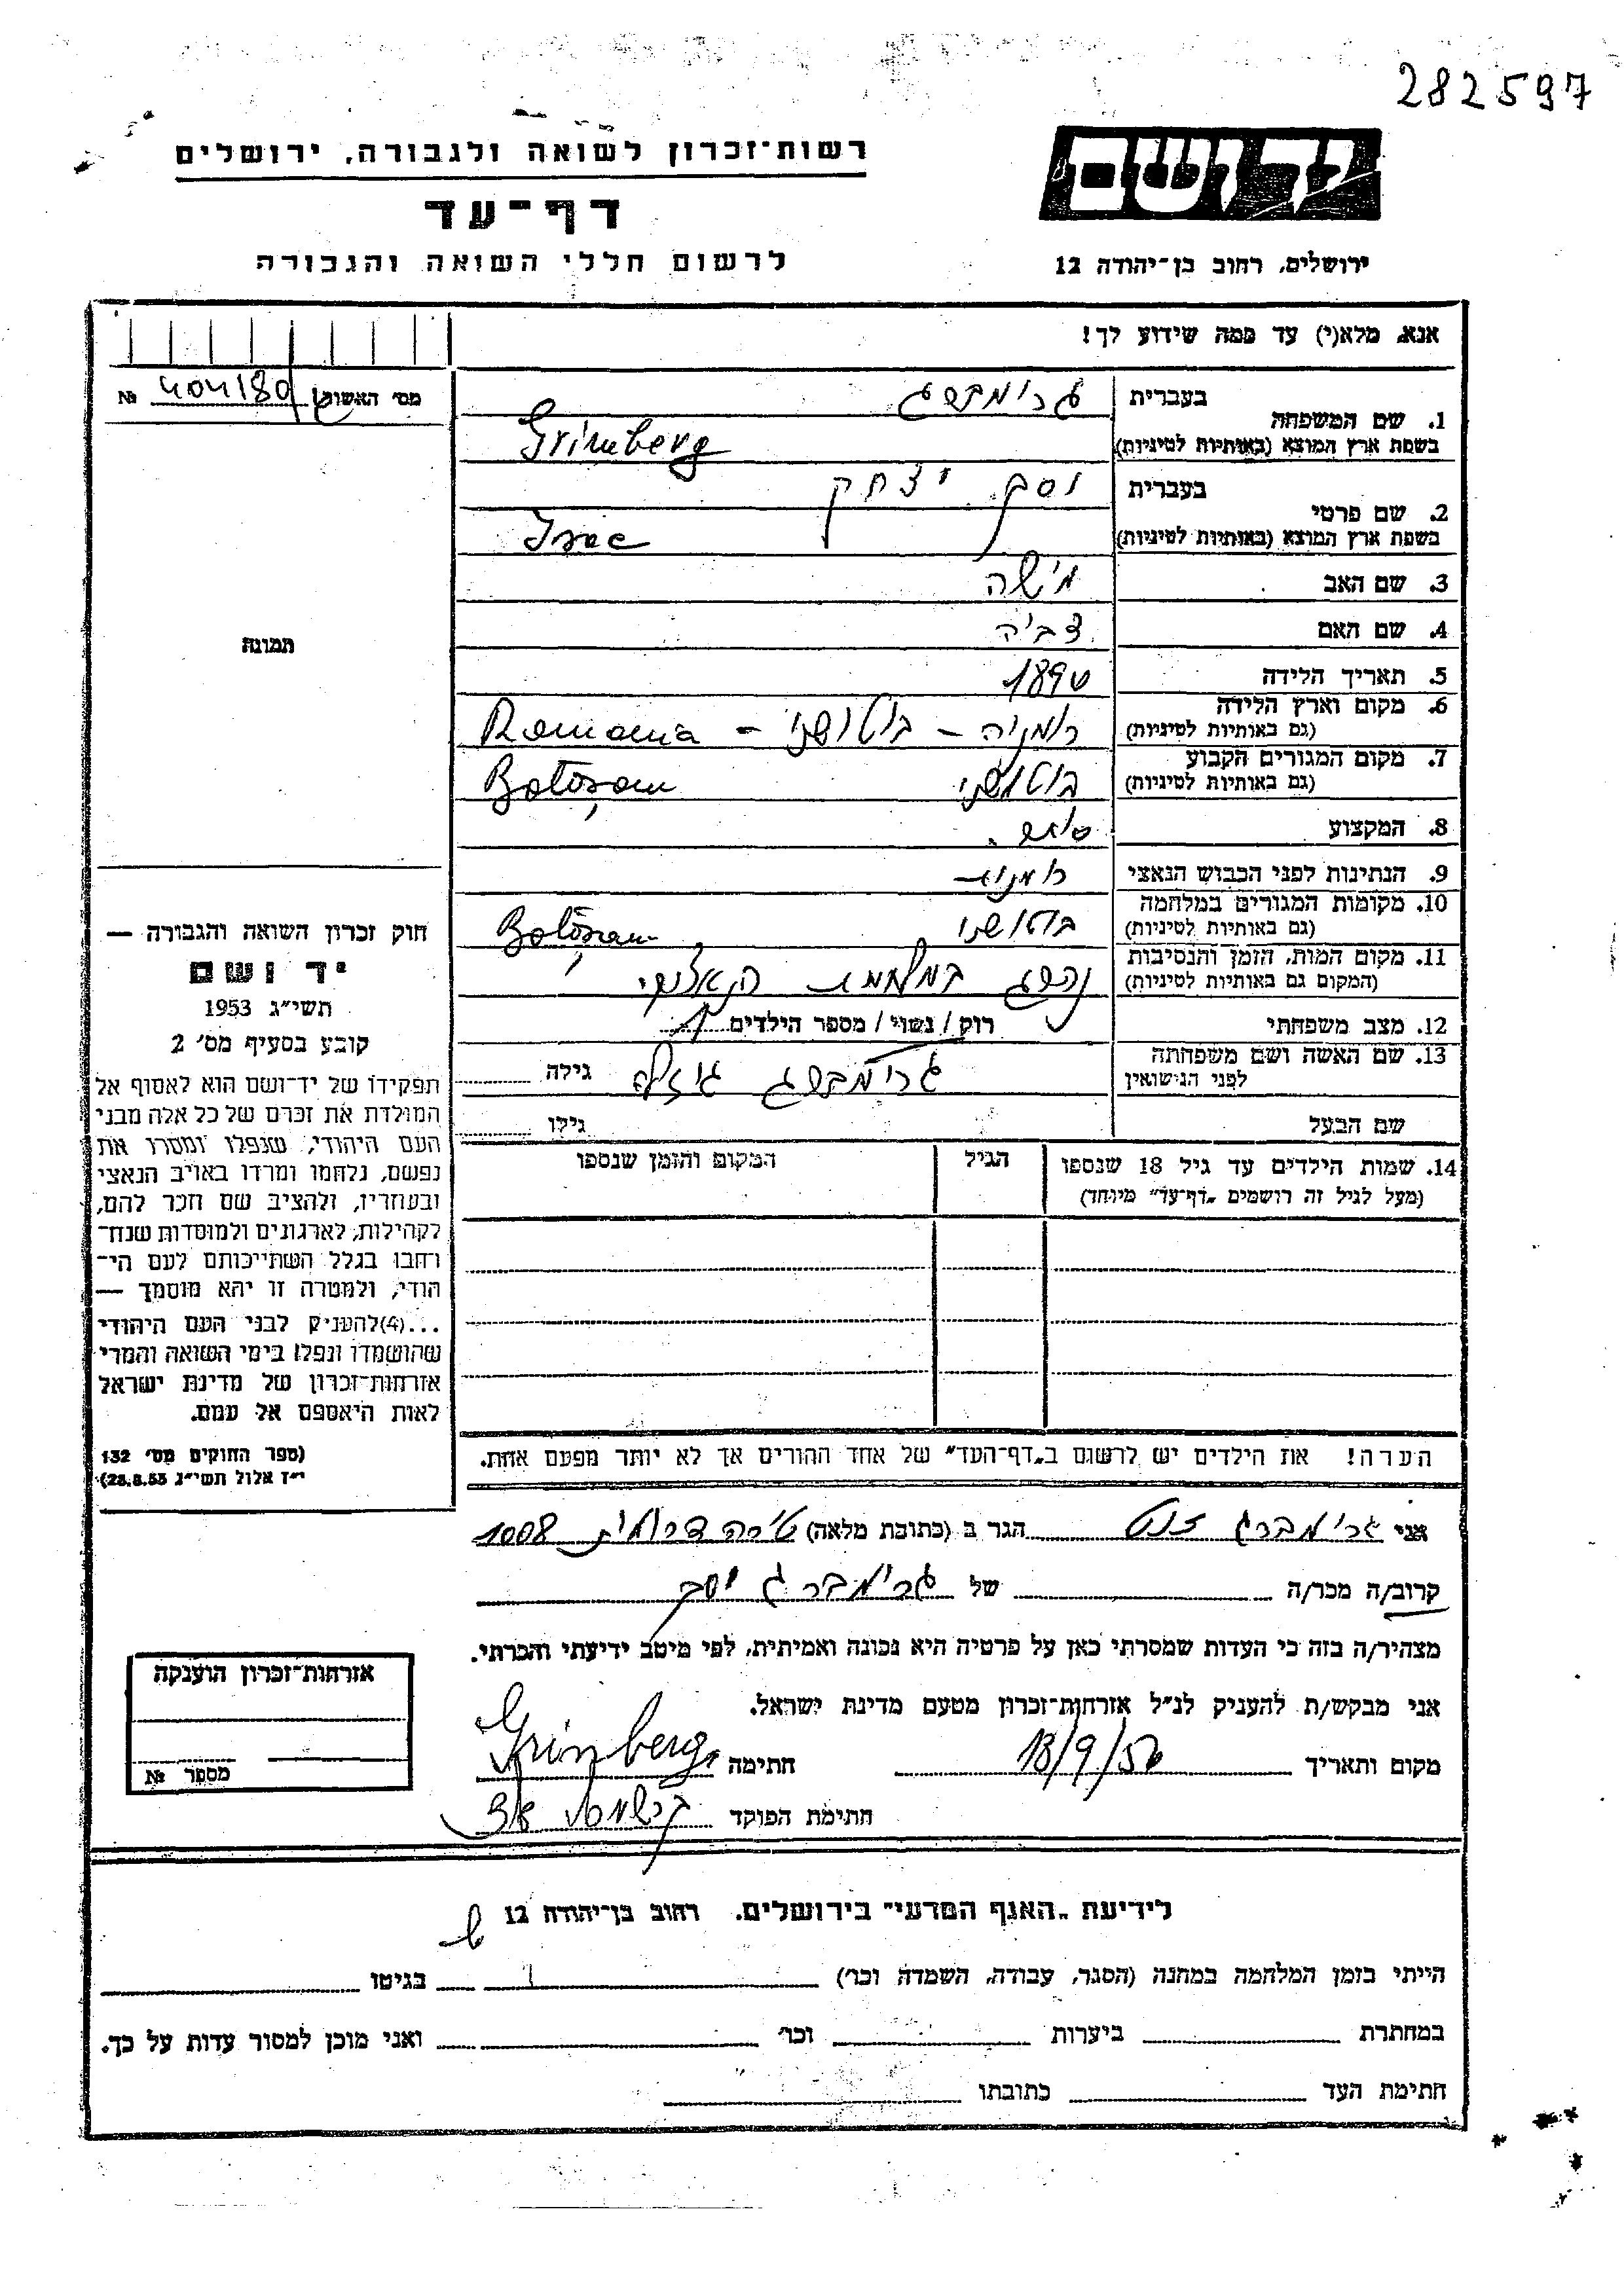 282597
יד ושם
ירושלים, רחוב בן-יהודה 12
רשות-זכרון לשואה ולגבורה, ירושלים
דף-עד
לרשום חללי השואה והגבורה
אנא, מלא(י) עד כמה שידוע לך!
מס' האשום № 404180
1. שם המשפחה
בעברית גרימברג
בשפת ארץ המוצא (באותיות לטיניות) Grimberg
2. שם פרטי
בעברית יוסף יצחק
בשפת ארץ המוצא (באותיות לטיניות) Isac
3. שם האב מישה
4. שם האם צביה
5. תאריך הלידה
6. מקום וארץ הלידה
(גם באותיות לטיניות) רומניה - בוטושני - Romania
7. מקום המגורים הקבוע
(גם באותיות לטיניות) בוטושני Botoșani
8. המקצוע
9. הנתינות לפני הכבוש הנאצי רומנית
10. מקומות המגורים במלחמה
(גם באותיות לטיניות) בוטושני Botoșani
11. מקום המות, הזמן והנסיבות
(המקום גם באותיות לטיניות) נהרג במלחמת
12. מצב משפחתי רוק / נשוי / מספר הילדים 1
13. שם האשה ושם משפחתה
לפני הנישואין גרימברג גיזלה גילה
שם הבעל גילו
14. שמות הילדים עד גיל 18 שנספו
(מעל לגיל זה רושמים "דף-עד" מיוחד)
הגיל
המקום והזמן שנספו
הערה! את הילדים יש לרשום ב"דף-העד" של אחד ההורים אך לא יותר מפעם אחת.
תמונה
חוק זכרון השואה והגבורה —
יד ושם
תשי"ג 1953
קובע בסעיף מס' 2
תפקידו של יד-ושם הוא לאסוף אל
המולדת את זכרם של כל אלה מבני
העם היהודי, שנפלו ומסרו את
נפשם, נלחמו ומרדו באויב הנאצי
ובעוזריו, ולהציב שם וזכר להם,
לקהילות, לארגונים ולמוסדות שנח-
רחבו בגלל השתייכותם לעם הי-
הודי, ולמטרה זו יהא מוסמך —
...(4)להעניק לבני העם היהודי
שהושמדו ונפלו בימי השואה והמרי
אזרחות-זכרון של מדינת ישראל
לאות היאספם אל עמם.
(ספר החוקים מס' 132
י"ז אלול תשי"ג 28.8.53)
אני גרימברג ז'נט הגר ב (כתובת מלאה) טירה דרומית 1008
קרוב/ה מכר/ה של גרימברג יוסף
מצהיר/ה בזה כי העדות שמסרתי כאן על פרטיה היא נכונה ואמיתית, לפי מיטב ידיעתי והכרתי.
אני מבקש/ת להעניק לנ"ל אזרחות-זכרון מטעם מדינת ישראל.
מקום ותאריך 18/9/56 חתימה Grinberg
חתימת הפוקד
אזרחות-זכרון הוענקה
מספר №
לידיעת "האגף המדעי" בירושלים, רחוב בן-יהודה 12
הייתי בזמן המלחמה במחנה (הסגר, עבודה, השמדה וכו') בגיטו
במחתרת ביערות וכו' ואני מוכן למסור עדות על כך.
חתימת העד כתובתו